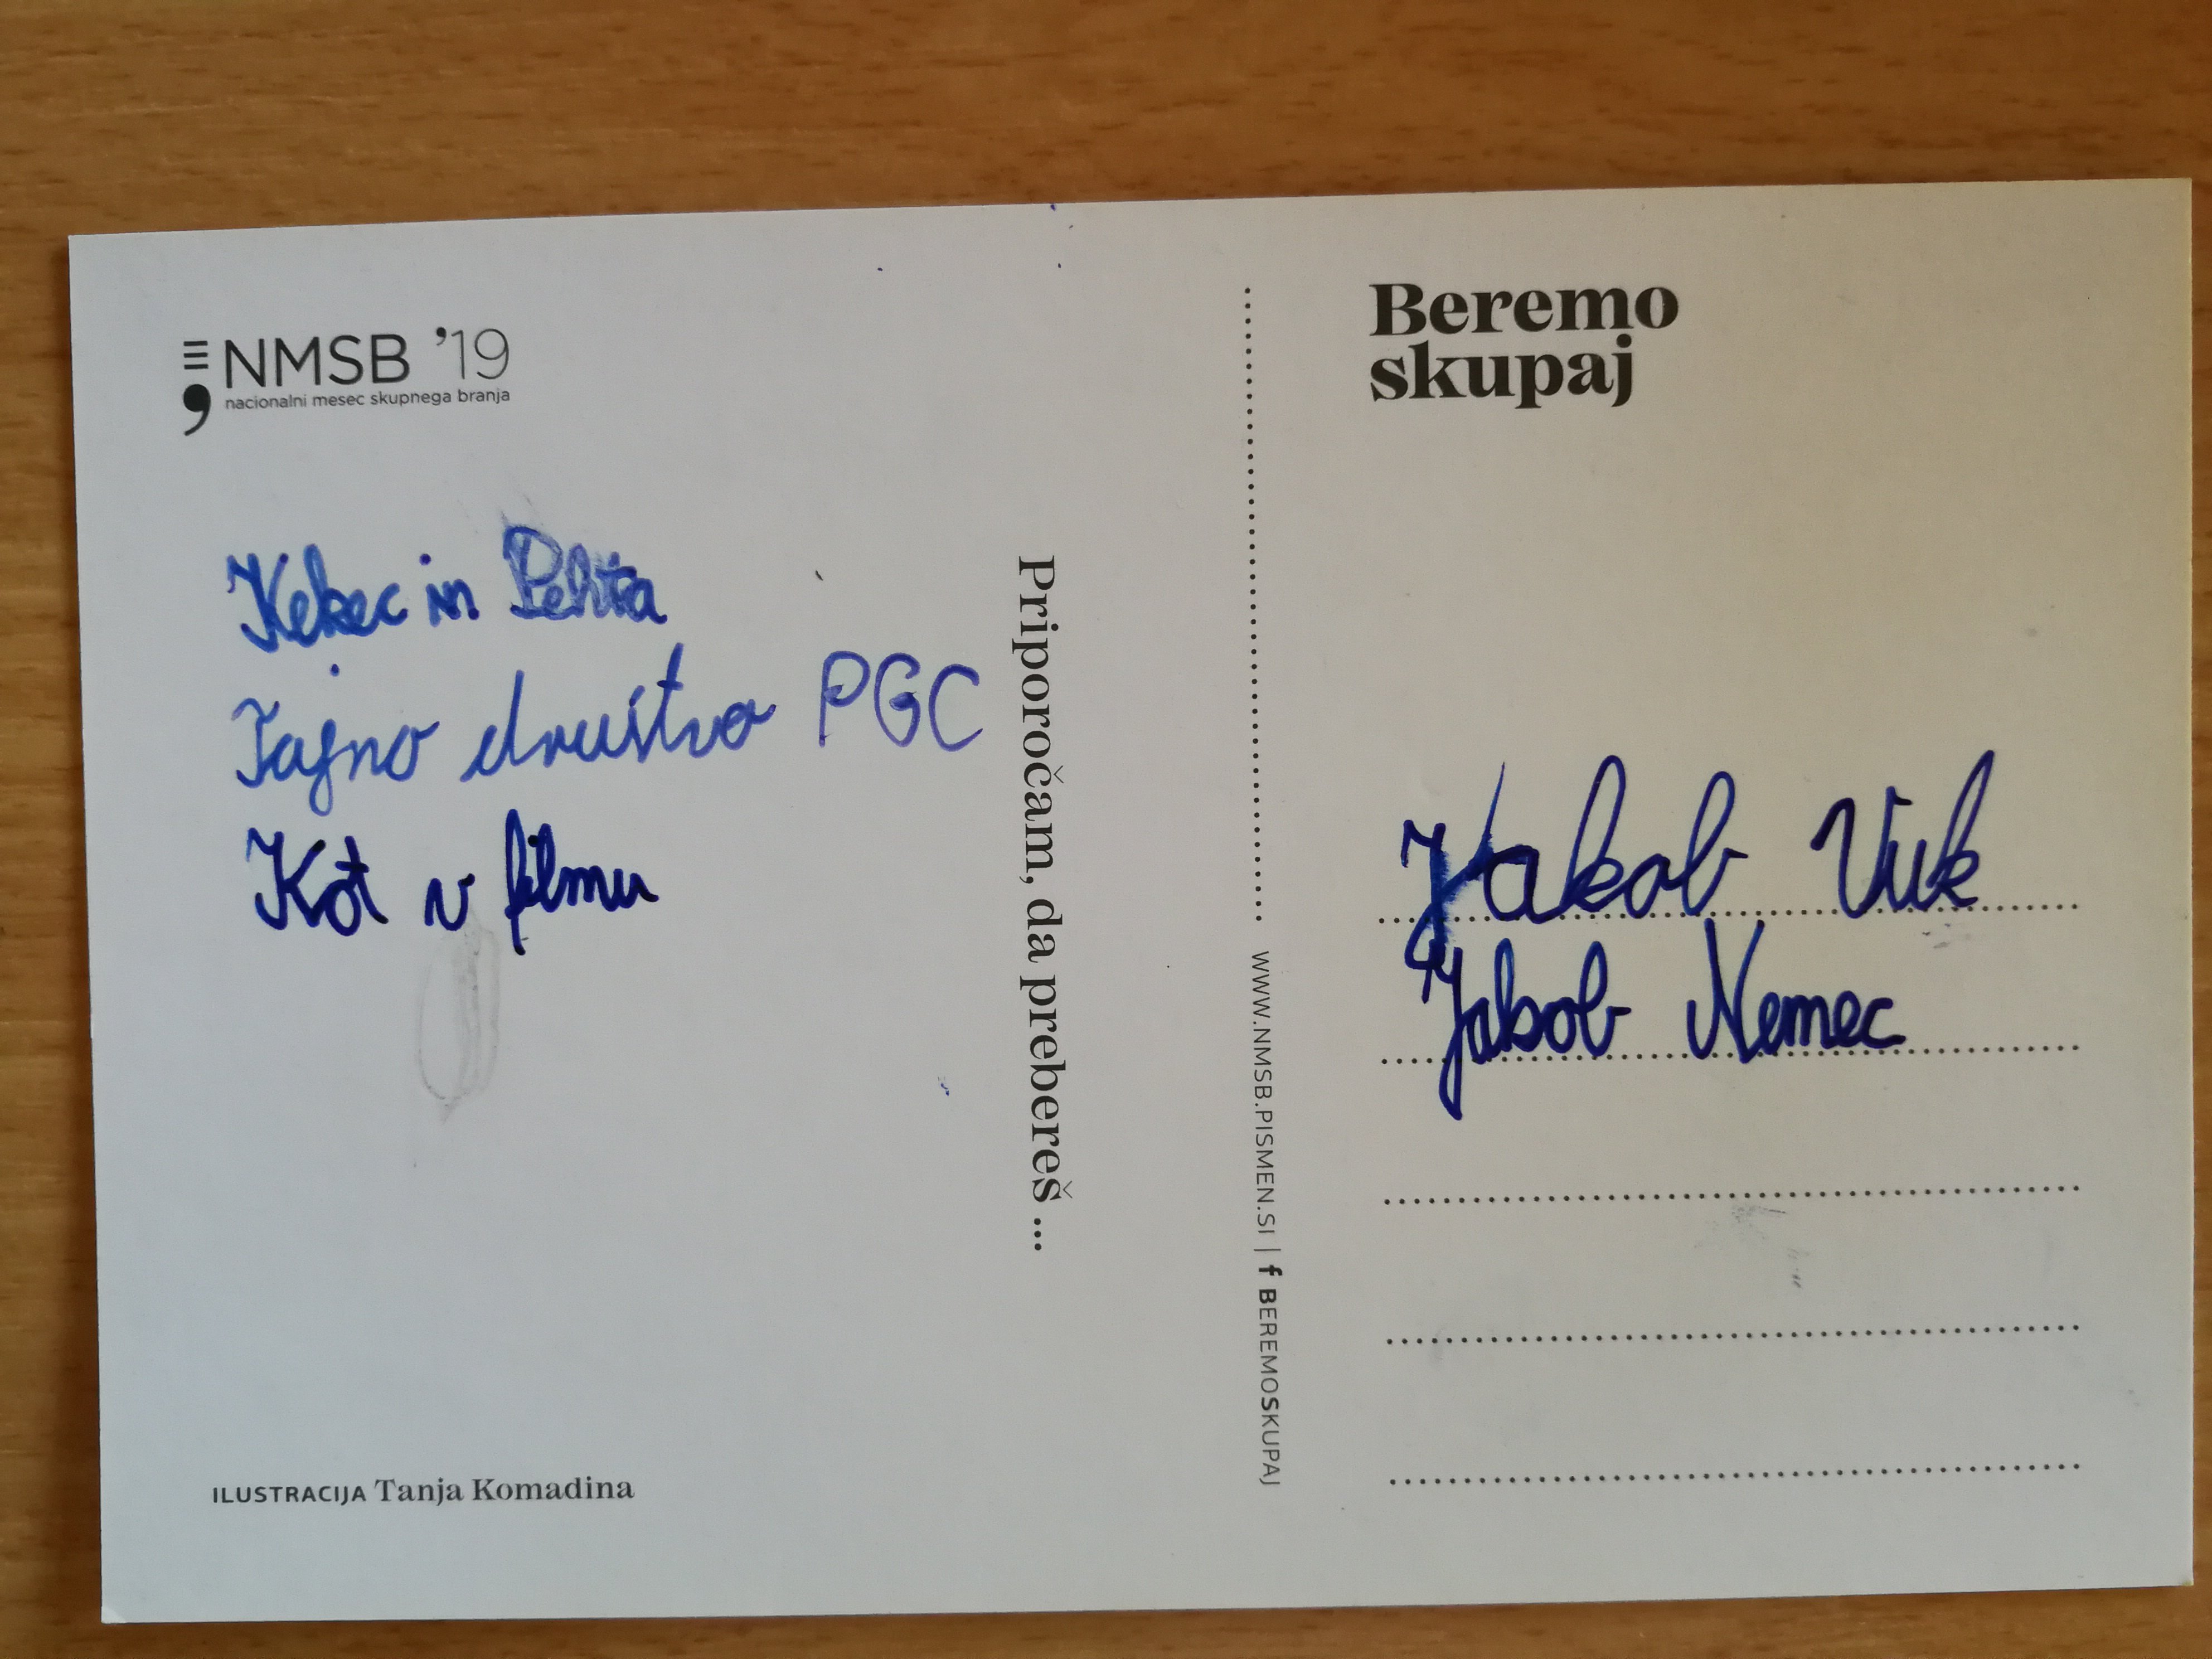 NMSB '19
nacionalni mesec skupnega branja
Kekec in Pehta
Tajno društvo PGC
Kot v filmu
Priporočam, da prebereš ...
ILUSTRACIJA Tanja Komadina
WWW.NMSB.PISMEN.SI | f BEREMOSKUPAJ
Beremo
skupaj
Jakob Vuk
Jakob Nemec